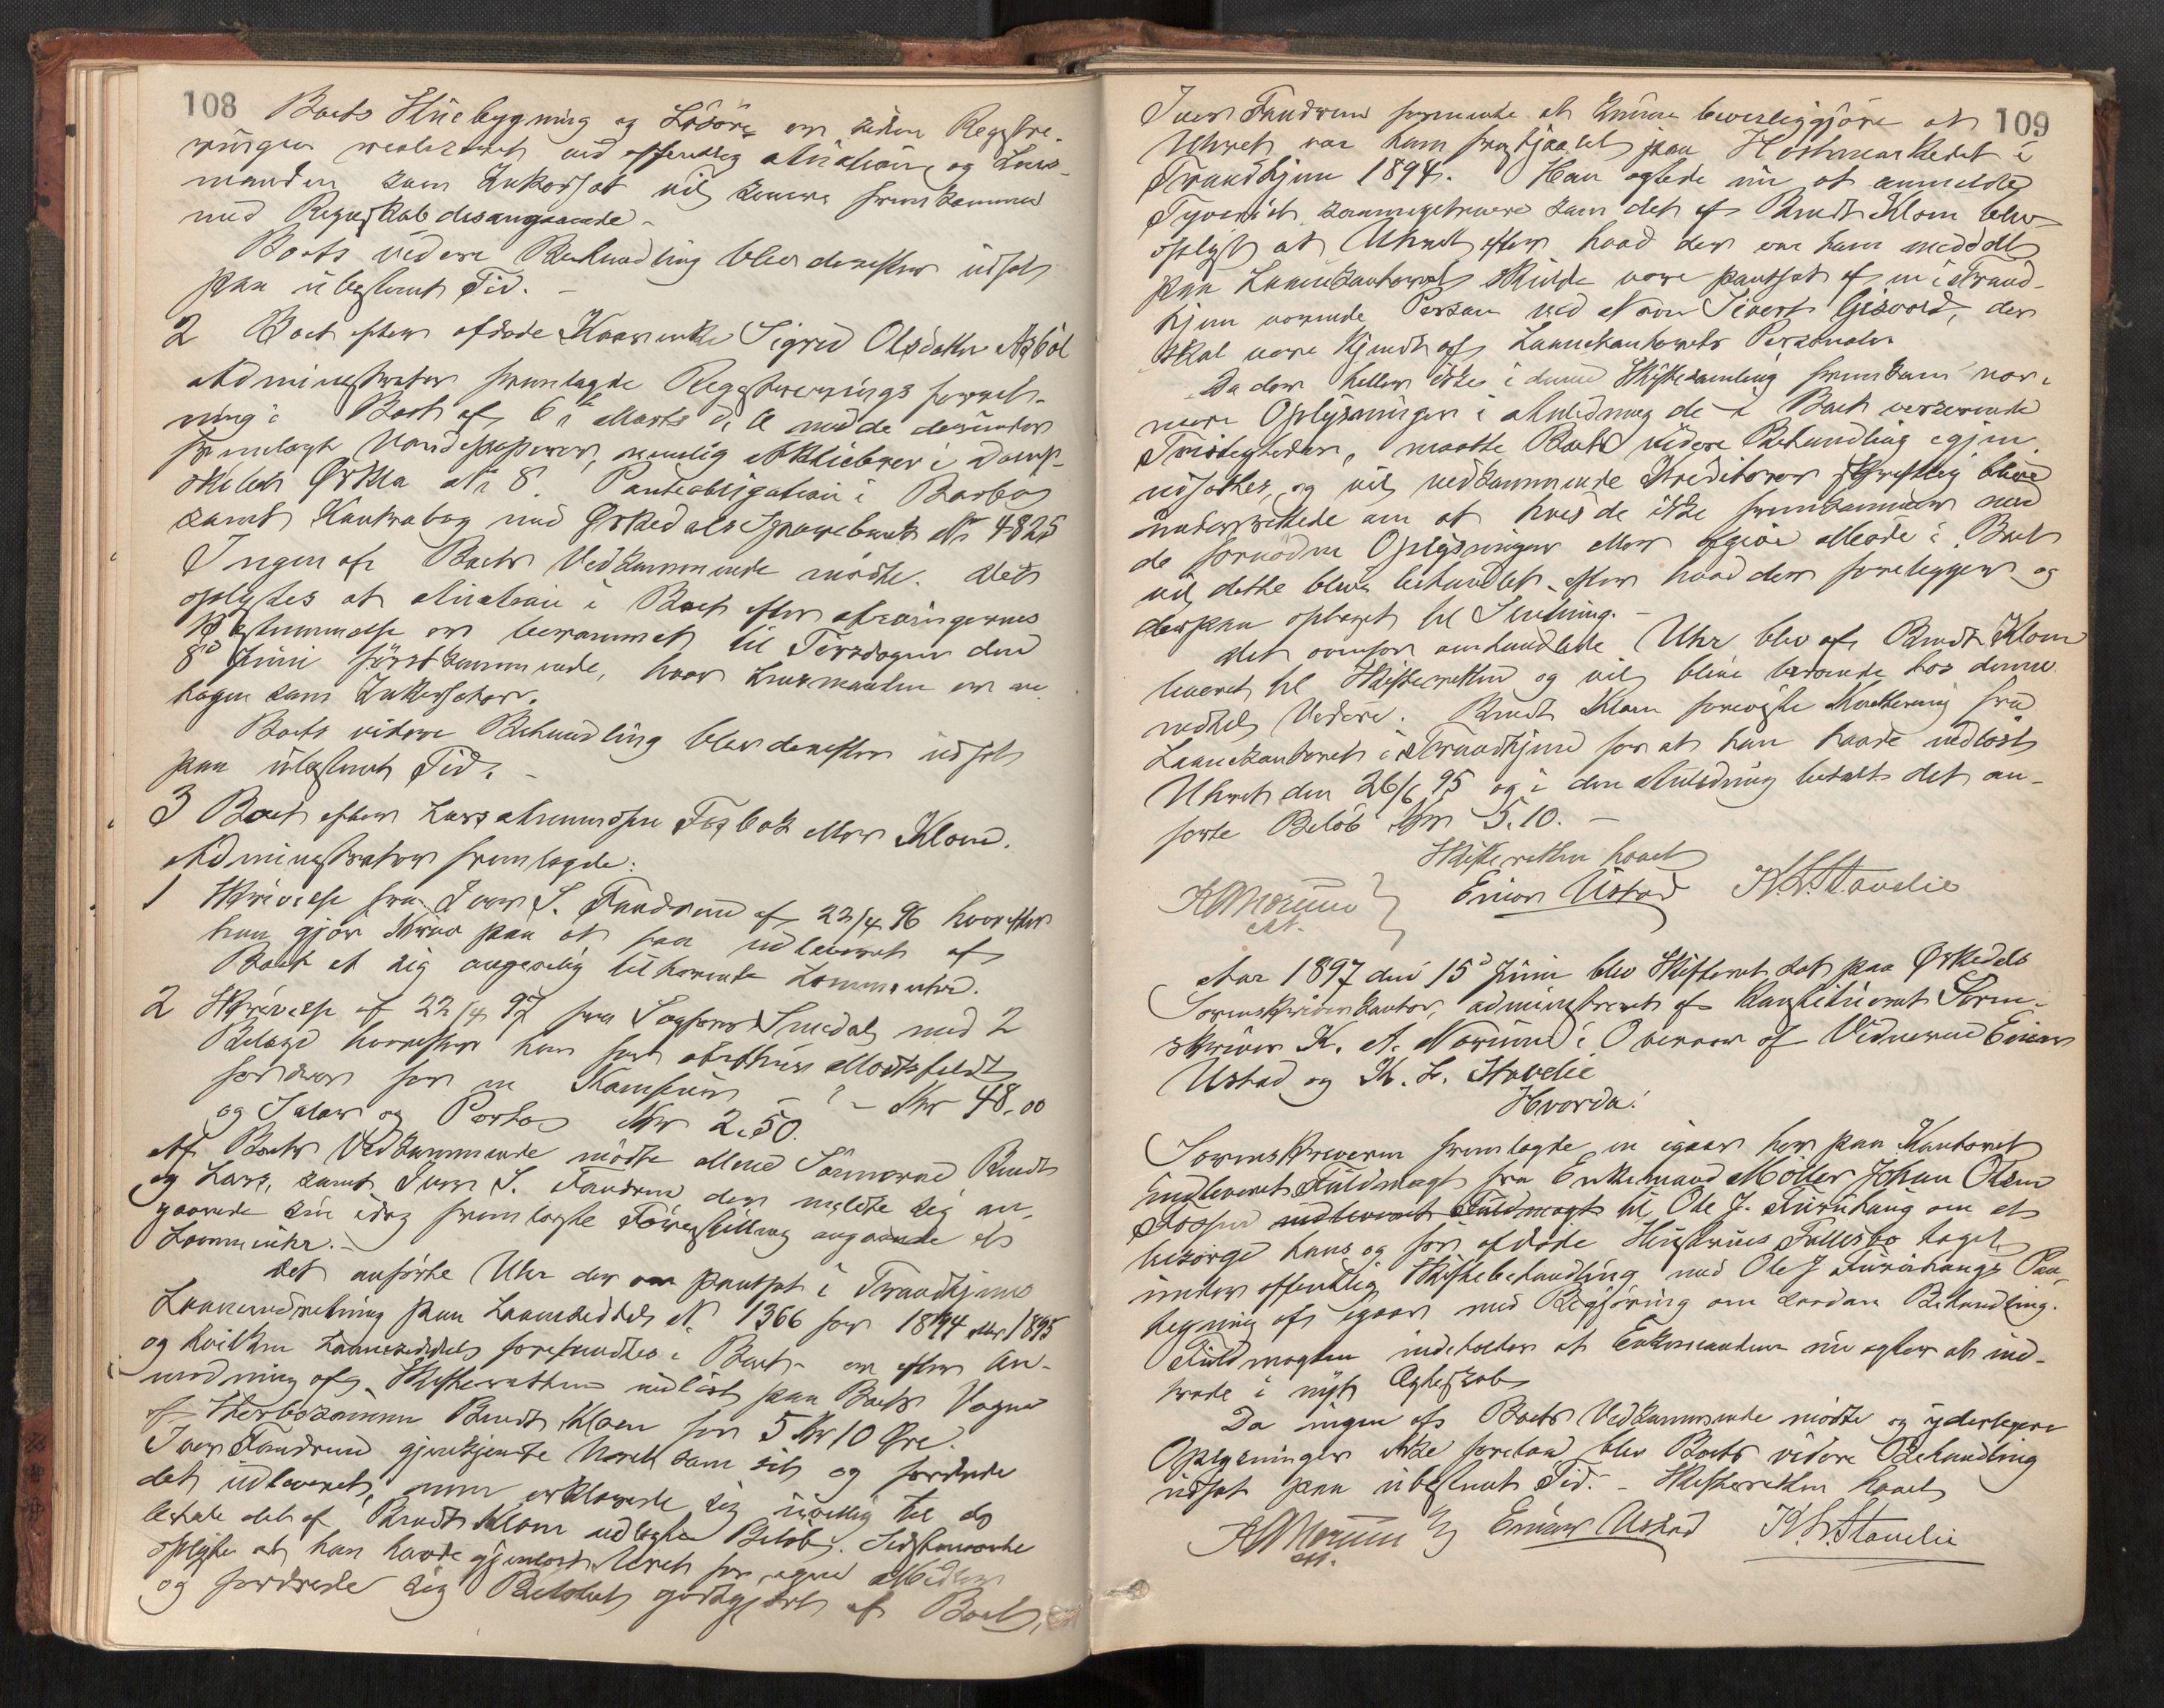 108
Boets Stuebygning og Lösöre er siden Registre-
ringen realiseret ved offentlig Auktion, og Lens-
manden som Inkassator vil senere fremkomme
med Regnskab desangaaende.
Boets videre Behandling blev derefter udsat
paa ubestemt Tid. -
2 Boet efter afdöde Kaarenke Sigrid Olsdatter Asböl
Administrator fremlagde Registreringsforret-
ning i Boet af 6te Marts d. A. med de derunder
fremlagte Værdipapirer, nemlig Aktiebrev i Damp-
skibet Örkla No 8. Panteobligation i
samt Kontrabog med Örkedals Sparebank No 4825
Ingen af Boets Vedkommende mödte. Det
oplystes at Auktion i Boet efter Arvingernes
Bestemmelse er berammet til Torsdagen den
8de Juni förstkommende, hvor Lensmanden er an-
tagen som Inkassator.
Boets videre Behandling blev derefter udsat
paa ubestemt Tid. -
3 Boet efter Lars Amundsen Fosbak eller Klomo.
Administrator fremlagde:
1 Skrivelse fra Iver S. Fandrem af 22/4 96 hvorefter
han gjör Krav paa at faa udleveret af
Boet et sig angivelig tilhörende Lommeuhr.
2 Skrivelse af 22/4 97 fra Sagförer Smedal med 2
Bilage hvorefter han for Arthur Motzfeldt
fordrer for en Komfur - ? - Kr 48.00
og Salær og Porto Kr 2.50.
Af Boets Vedkommende mödte alene Sönnerne Bendt
og Lars, samt Iver S. Fandrem der meldte sig an-
gaaende sin idag fremlagte Forestilling angaaende et
Lommeuhr. -
Det anförte Uhr der var pantsat i Trondhjems
Laaneindretning paa Laaneseddel No 1366 for 1894 eller 1895
og hvilken Laaneseddel forefandtes i Boet - er efter An-
modning af Skifteretten indlöst paa Boets Vegne
af Sterbosönnen Bendt Klomo for 5 Kr 10 Öre.
Iver Fandrem gjenkjendte Uhret som sit og fordrede
det udleveret, men erklærede sig uvillig til at
betale det af Bendt Klomo udlagte Belöb. Sidstnævnte
oplyste at han havde gjenlöst Uhret for egne Midler
og fordrede sig Belöbet godtgjort af Boet,
109
Iver Fandrem formente at kunne beviseliggjöre at
Uhret var ham frastjaalet paa Höstmarkedet i
Trondhjem 1894. Han agtede nu at anmelde
Tyveriet sammesteders som det af Bendt Klomo blev
oplyst at Uhret efter hvad der var ham meddelt
paa Laanekontoret skulde være pantsat af en i Trond-
hjem boende Person ved Navn Sivert Gisvold, der
skal være kjendt af Laanekontorets Personale.
Da der heller ikke i denne Skiftesamling fremkom nær-
mere Oplysninger i Anledning de i Boet værende
Tvistigheder, maatte Boets videre Behandling igjen
udsættes, og vil vedkommende Kreditorer skriftlig blive
underrettede om at hvis de ikke fremkommer med
de fornödne Oplysninger eller afgive Möde i Boet
vil dette blive behandlet efter hvad der foreligger og
derpaa optaget til Slutning. -
Det ovenfor omhandlede Uhr blev af Bendt Klomo
leveret til Skifteretten og vil blive beroende hos denne
indtil Videre. Bendt Klomo foreviste Kvittering fra
Laanekontoret i Trondhjem for at han havde indlöst
Uhret den 26/6 95 og i den Anledning betalt det an-
förte Belöb Kr 5.10. -
Skifteretten hævet
K A Norum
cst.
Einar Ustad K. L. Stavelie
Aar 1897 den 15de Juni blev Skifteret sat paa Örkedals
Sorenskriverkontor, administreret af konstitueret Soren-
skriver K. A. Norum i Overvær af Vidnerne Einar
Ustad og K. L. Stavelie
Hvorda:
Sorenskriveren fremlagde en igaar her paa Kontoret
indleveret Fuldmagt fra Enkemand Möller Johan Olsen
indleveret Fuldmagt til Ole J. Furuhaug om at
besörge hans og hans afdöde Hustrues Fællesbo taget
under offentlig Skiftebehandling med Ole J. Furuhaugs Paa-
tegning af igaar med Begjæring om saadan Behandling.
Fuldmagten indeholder at Enkemanden nu agter at ind-
træde i nyt Ægteskab
Da ingen af Boets Vedkommende mödte og yderligere
Oplysninger ikke forelaa blev Boets videre Behandling
udsat paa ubestemt Tid. - Skifteretten hævet
K A Norum
cst.
Einar Ustad K. L. Stavelie